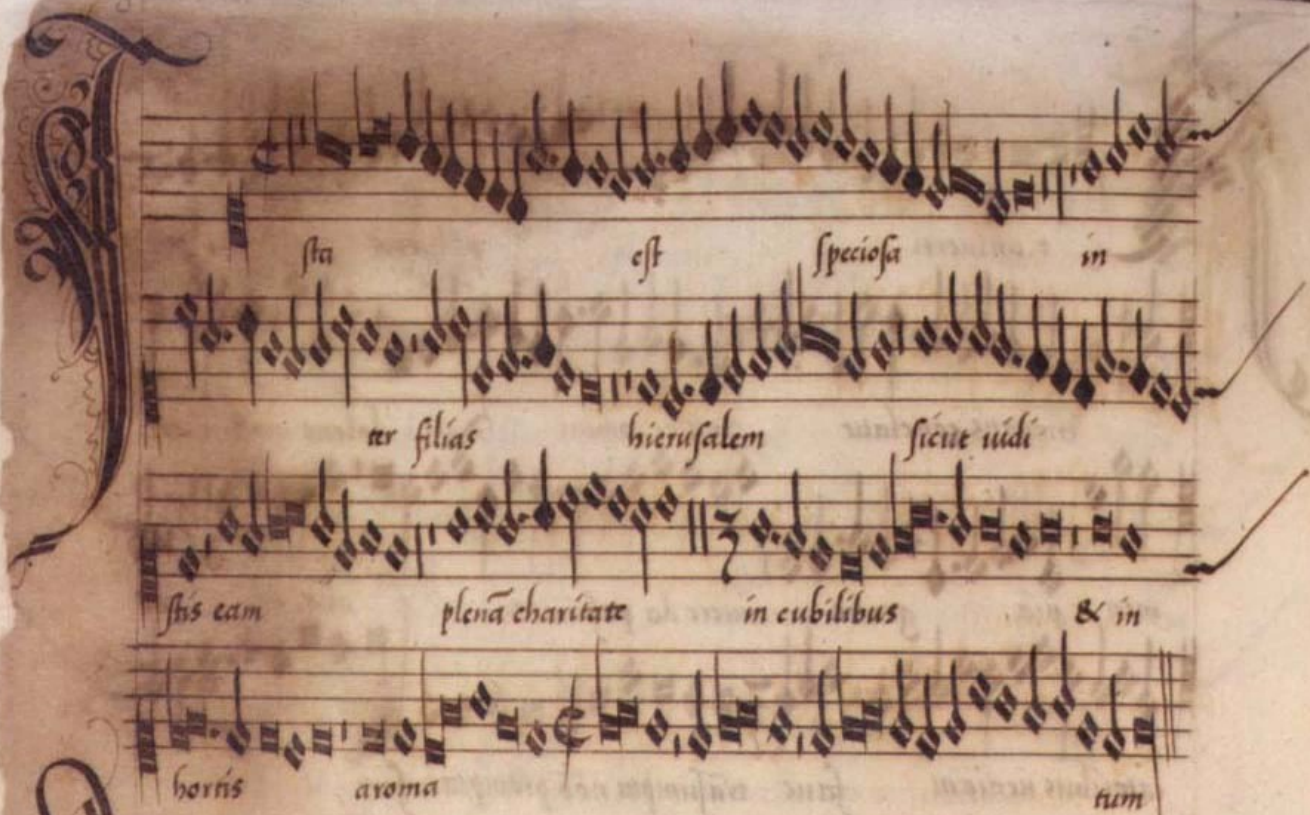 Ista est speciosa in
ter filias hierusalem sicut uidi
stis eam plenā charitate in cubilibus & in
hortis aroma tum